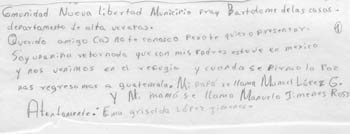 Comunidad Nueva libertad Municipio Fray Bartolome de las casas.
departamento de alta verapaz.
Querido amigo (a) no te conosco Pero te quiero presentar. ①
Soy una niña retornada que con mis Padres estuve en mexico
y nos venimos en el refugio y cuando se firmo la Paz
nos regresamos a guatemala. Mi papá se llama Manuel López G.
Y Mi mamá se llama Manuela Jimenes Ross
Atentamente: Ema griselda López jimenes